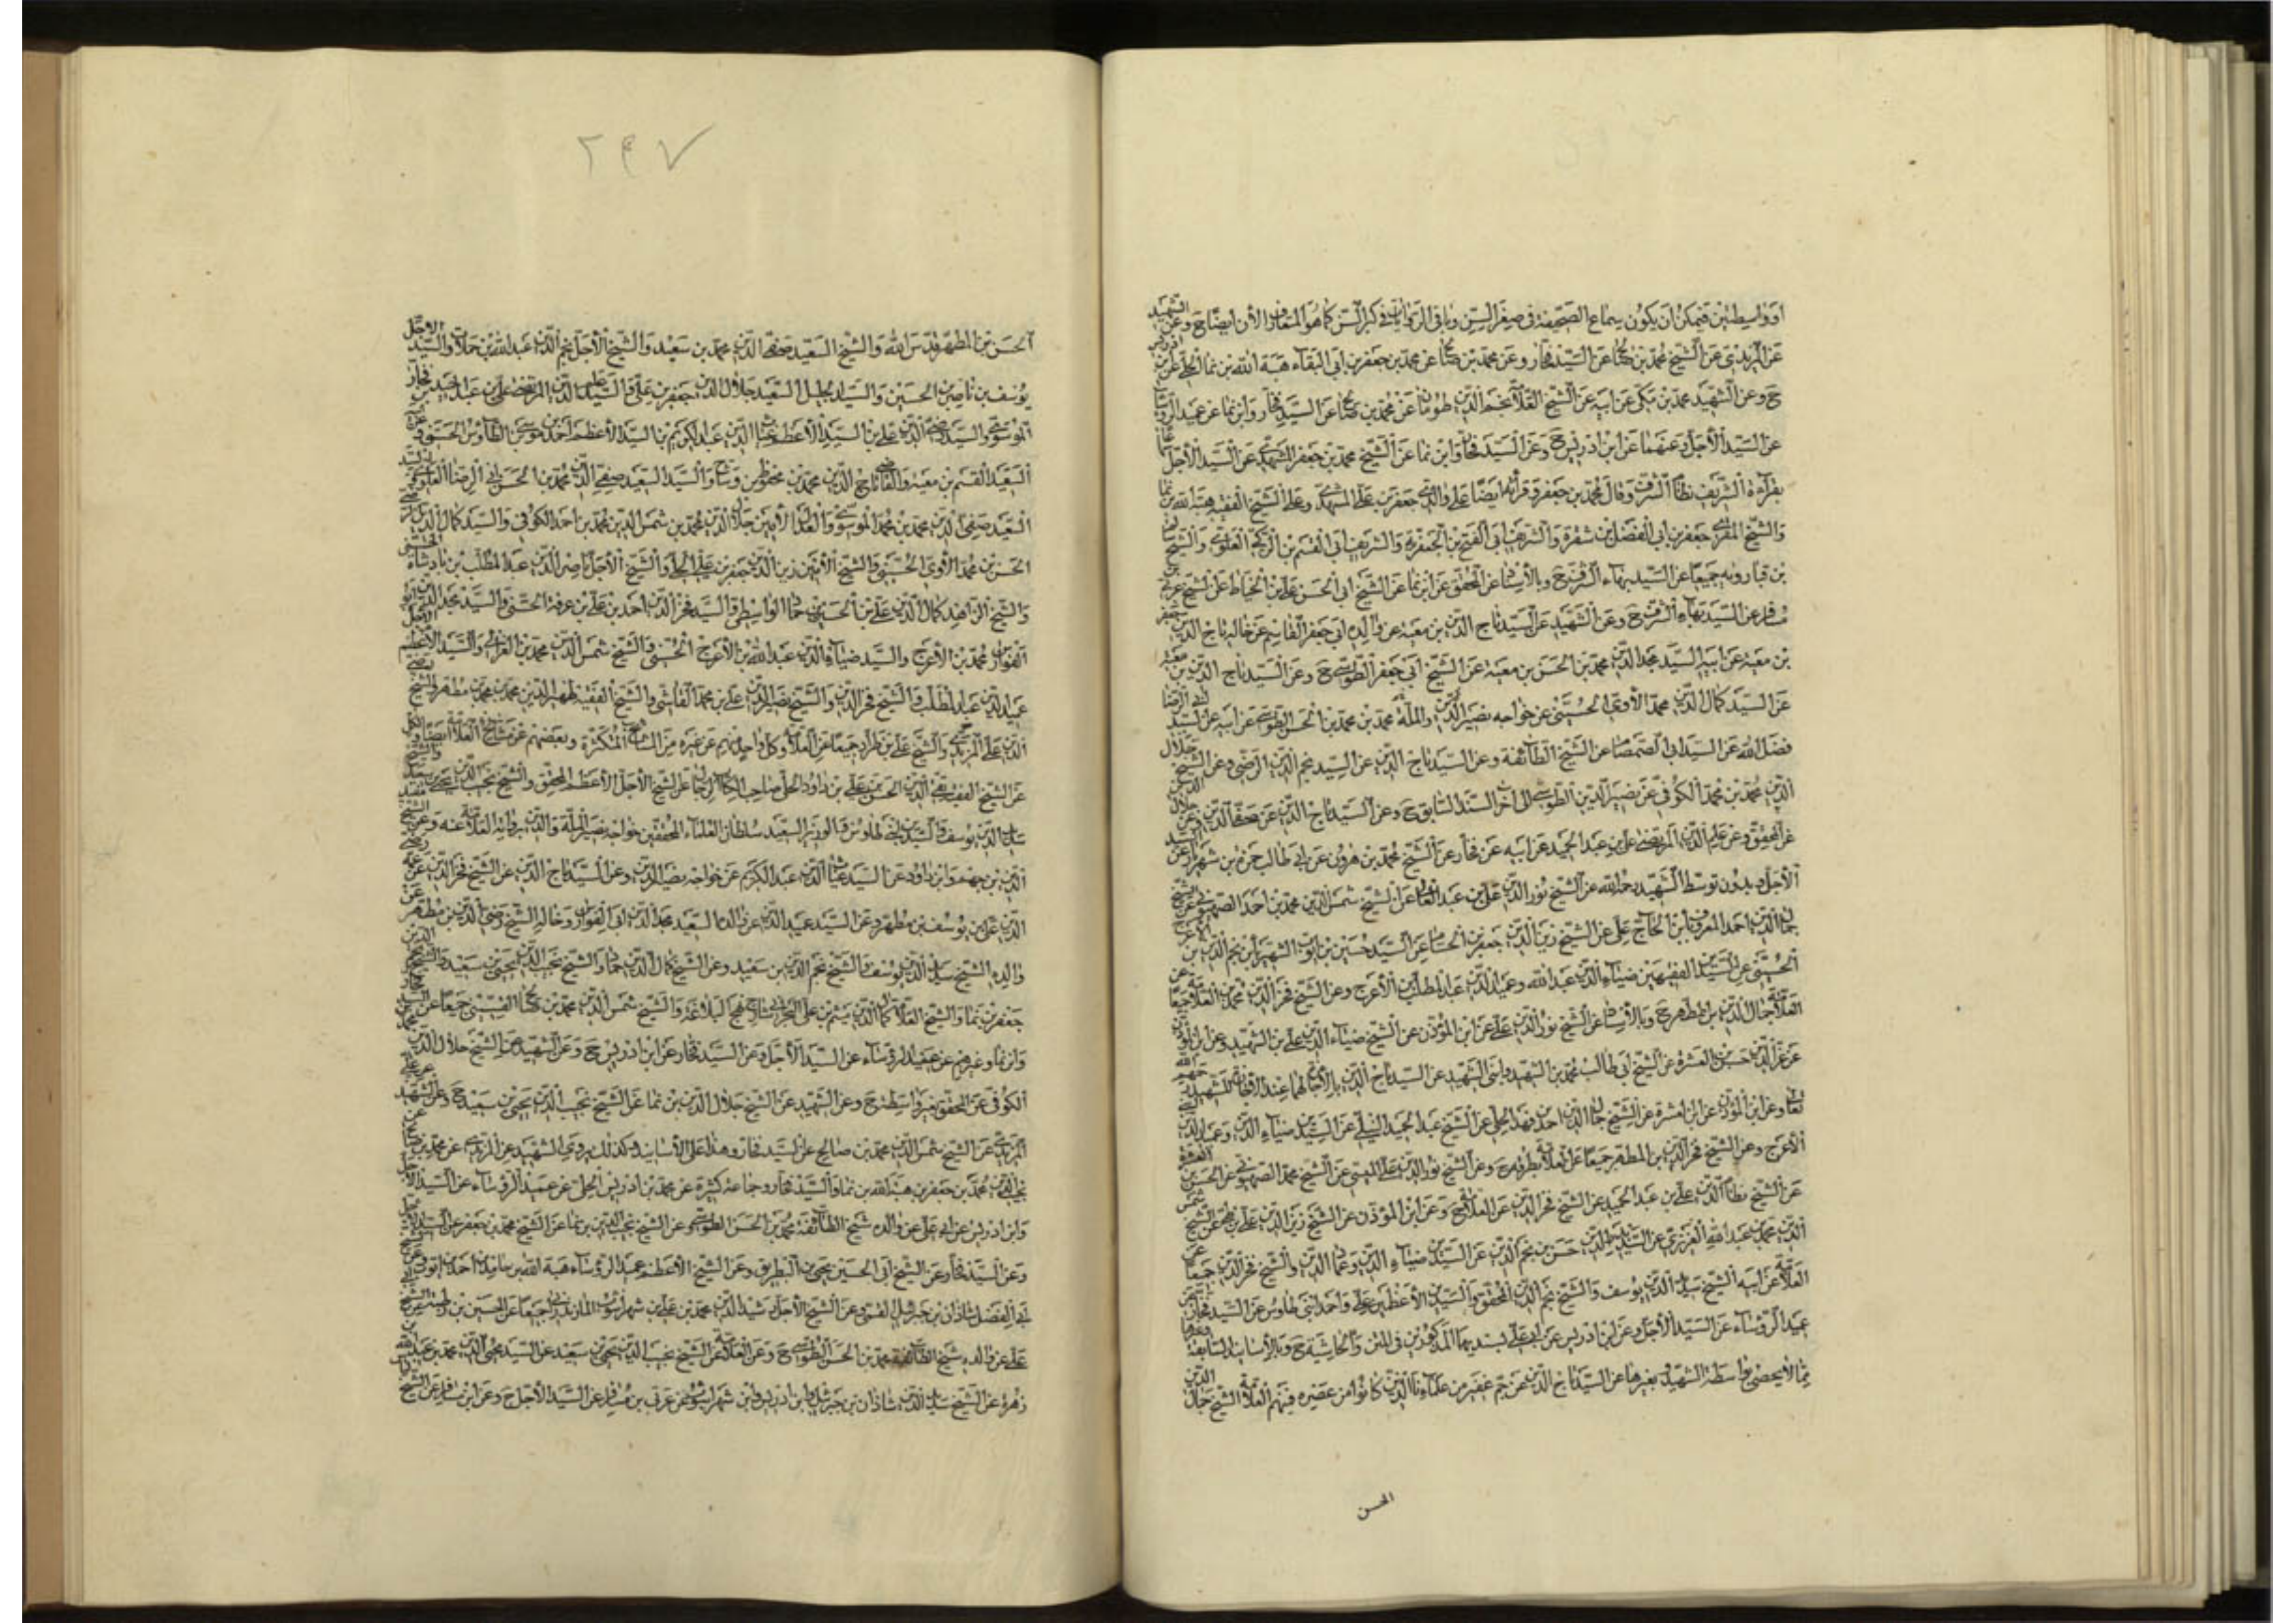 او واسطتين فيمكن ان يكون سماع الصحيفة في صغر السن وباقي الروايات في كبر السن كما هو المتعارف الآن ايضا ح وعن الشهيد
عن المزيدي عن الشيخ محمد بن صالح عن السيد فخار وعن محمد بن صالح عن محمد بن جعفر بن ابي البقاء هبة الله بن نما الحلي عن ابن ادريس
ح وعن الشهيد محمد بن مكي عن ابيه عن الشيخ العلامة نجم الدين طومان عن محمد بن صالح عن السيد فخار وابن نما عن عميد الرؤساء
عن السيد الأجل وعنهما عن ابن ادريس ح وعن السيد فخار وابن نما عن الشيخ محمد بن جعفر المشهدي عن السيد الأجل
بقراءة الشريف نظام الشرف وقال محمد بن جعفر وقرأته ايضا على والدي جعفر بن علي المشهدي وعلى الشيخ الفقيه هبة الله بن نما
والشيخ المقري جعفر بن ابي الفضل بن شعرة والشريف ابي الفتح بن الجعفرية والشريف ابي القسم بن الزكي العلوي والشيخ
بن قبارويه جميعا عن السيد بهاء الشرف ح وبالأسناد عن المحقق عن ابن نما عن الشيخ ابي الحسن علي بن الخياط عن الشيخ عربي بن
مسافر عن السيد بهاء الشرف ح وعن الشهيد عن السيد تاج الدين بن معية عن والده ابي جعفر القاسم عن خاله تاج الدين جعفر
بن معية عن ابيه السيد مجد الدين محمد بن الحسن بن معية عن الشيخ ابي جعفر الطوسي ح وعن السيد تاج الدين بن معية
عن السيد كمال الدين محمد الآوي الحسيني عن خواجه نصير الدين والملة محمد بن محمد بن الحسن الطوسي عن ابيه عن السيد ابي الرضا
فضل الله عن السيد ابي الصمصام عن الشيخ الطائفة وعن السيد تاج الدين عن السيد نجم الدين الرضي وعن الشيخ جلال
الدين محمد بن محمد الكوفي عن نصير الدين الطوسي الى آخر السند السابق ح وعن السيد تاج الدين عن
عن المحقق وعن علم الدين المرتضى علي بن عبد الحميد عن ابيه عن فخار عن الشيخ محمد بن هرون عن ابي طالب حمزة بن شهريار عن السيد
الأجل بدون توسط الشهيد رحمه الله عن الشيخ نور الدين علي بن عبد العالي عن الشيخ شمس الدين محمد بن احمد الصهيوني عن الشيخ
جمال الدين احمد المعروف بابن الحاج علي عن الشيخ زين الدين جعفر بن الحسام عن السيد حسين بن ايوب الشهير بابن نجم الدين بن الأعرج
الحسيني عن السيدين الفقيهين ضياء الدين عبد الله وعميد الدين عبد المطلب ابن الأعرج وعن الشيخ فخر الدين محمد بن العلامة جميعا عن
العلامة جمال الدين بن المطهر ح وبالأسناد عن الشيخ نور الدين علي عن ابن المؤذن عن الشيخ ضياء الدين علي بن الشهيد وعن ابن المؤذن
عن عز الدين حسن بن العشرة عن الشيخ ابي طالب محمد بن الشهيد وابني الشهيد عن السيد تاج الدين
تعالى وعن ابن المؤذن عن ابن العشرة عن الشيخ جمال الدين احمد بن فهد الحلي عن الشيخ عبد الحميد النيلي عن السيدين ضياء الدين وعميد الدين ابني
الأعرج وعن الشيخ فخر الدين بن المطهر جميعا عن العلامة بطرقه ح وعن الشيخ نور الدين علي الميسي عن الشيخ محمد الصهيوني عن الحسن بن العشرة
عن الشيخ نظام الدين علي بن عبد الحميد عن الشيخ فخر الدين عن العلامة ح وعن ابن المؤذن عن الشيخ زين الدين علي بن طي عن الشيخ شمس
الدين محمد بن عبد الله العريضي عن السيد بدر الدين حسن بن نجم الدين عن السيدين ضياء الدين وعماد الدين والشيخ فخر الدين جميعا عن
العلامة عن ابيه الشيخ سديد الدين يوسف والشيخ نجم الدين المحقق والسيدين الأعظمين علي واحمد ابني طاوس عن السيد فخار عن
عميد الرؤساء عن السيد الأجل وعن ابن ادريس عن ابي علي بسنديهما المذكورين في المتن والحاشية ح وبالأسانيد السابقة وغيرها
مما لا يحصى بواسطة الشهيد وبغيرها عن السيد تاج الدين عن جم غفير من علمائنا الذين كانوا من عصره فمنهم العلامة الشيخ جمال الدين
الحسن
٢٤٧
الحسن بن المطهر قدس الله والشيخ السعيد صفي الدين محمد بن سعيد والشيخ الأجل نجم الدين عبد الله بن حملات والسيد الأجل
يوسف بن ناصر بن الحسين والسيد الجليل السعيد جلال الدين جعفر بن علي والسيد علم الدين المرتضى علي بن عبد الحميد بن فخار
الموسوي والسيد رضي الدين علي بن السيد الأعظم غياث الدين عبد الكريم بن السيد الأعظم احمد بن موسى بن الطاوس الحسني
السعيد القسم بن معية والقاضي تاج الدين محمد بن محفوظ بن وشاح والسيد السعيد صفي الدين محمد بن الحسن ابي الرضا العلوي
السعيد صفي الدين محمد بن محمد الموسوي والعدل الأمين جلال الدين محمد بن شمس الدين محمد بن احمد الكوفي والسيد كمال الدين الرضي
الحسن بن محمد الآوي الحسيني والشيخ الأمين زين الدين جعفر بن علي الحلي والشيخ الأجل ناصر الدين عبد المطلب بن بادشاه الحسيني
والشيخ الزاهد كمال الدين علي بن الحسين بن حماد الواسطي والسيد فخر الدين احمد بن علي بن عرفة الحسني والسيد مجد الدين ابو
الفوارس محمد بن الأعرج والسيد ضياء الدين عبد الله بن الأعرج الحسيني والشيخ شمس الدين محمد بن الغزالي والسيد الأعظم الأجل
عميد الدين عبد المطلب والشيخ فخر الدين والشيخ نصير الدين علي بن محمد القاشي والشيخ الفقيه ظهير الدين محمد بن محمد بن مطهر والشيخ رضي
الدين علي المزيدي والشيخ علي بن طراد جميعا عن العلامة وكل واحد منهم عن غيره من المشايخ المتكثرة وبعضهم عن مشايخ العلامة ايضا
عن الشيخ الفقيه تقي الدين الحسن بن علي بن داود الحلي صاحب الكتاب عن الشيخ الأجل الأعظم المحقق والشيخ نجيب الدين يحيى بن سعيد والشيخ
سديد الدين يوسف والسيدين ابني طاوس والوزير السعيد سلطان العلماء المحققين خواجه نصير الملة والدين برواية العلامة عنه وعن الشيخ مفيد
الدين بن جهم وابن داود عن السيد غياث الدين عبد الكريم عن خواجه نصير الدين وعن السيد تاج الدين عن الشيخ فخر الدين عن عمه رضي
الدين علي بن يوسف بن مطهر وعن السيد عميد الدين عن والده السعيد مجد الدين ابي الفوارس وخاله الشيخ رضي الدين بن مطهر عن
والده الشيخ سديد الدين يوسف والشيخ نجم الدين بن سعيد وعن الشيخ كمال الدين بن حماد والشيخ نجيب الدين يحيى بن سعيد والشيخ نجم الدين
جعفر بن نما والشيخ العلامة كمال الدين ميثم بن علي البحراني شارح نهج البلاغة والشيخ شمس الدين محمد بن صالح القسيني جميعا عن السيد فخار
وابن نما وغيرهم عن عميد الرؤساء عن السيد الأجل وعن السيد فخار عن ابن ادريس ح وعن الشهيد عن الشيخ جلال الدين محمد
الكوفي عن المحقق بغير واسطة ح وعن الشهيد عن الشيخ جلال الدين بن نما عن الشيخ نجيب الدين يحيى بن سعيد ح وعن الشهيد عن علي
المزيدي عن الشيخ شمس الدين محمد بن صالح عن السيد فخار وهذا على الأسانيد وكذلك يروي الشهيد عن المزيدي عن محمد بن صالح عن
نجيب الدين محمد بن جعفر بن هبة الله بن نما والسيد فخار وجماعة كثيرة عن محمد بن ادريس الحلي عن عميد الرؤساء عن السيد الأجل
وابن ادريس عن ابي علي عن والده شيخ الطائفة محمد بن الحسن الطوسي وعن الشيخ نجيب الدين بن نما عن الشيخ محمد بن جعفر عن السيد الأجل
وعن السيد فخار وعن الشيخ ابي الحسين يحيى بن البطريق وعن الشيخ الأعظم عميد الرؤساء هبة الله بن حامد بن احمد بن ايوب وعن الشيخ
ابي الفضل شاذان بن جبرئيل القمي وعن الشيخ الأجل رشيد الدين محمد بن علي بن شهرآشوب المازندراني جميعا عن الحسين بن رطبة عن الشيخ ابي
علي عن والده شيخ الطائفة محمد بن الحسن الطوسي ح وعن العلامة عن الشيخ نجيب الدين يحيى بن سعيد عن السيد محيي الدين محمد بن عبد الله بن
زهرة عن الشيخ سديد الدين شاذان بن جبرئيل وابن ادريس وابن شهرآشوب عن عربي بن مسافر عن السيد الأجل ح وعن ابن مسافر عن الشيخ